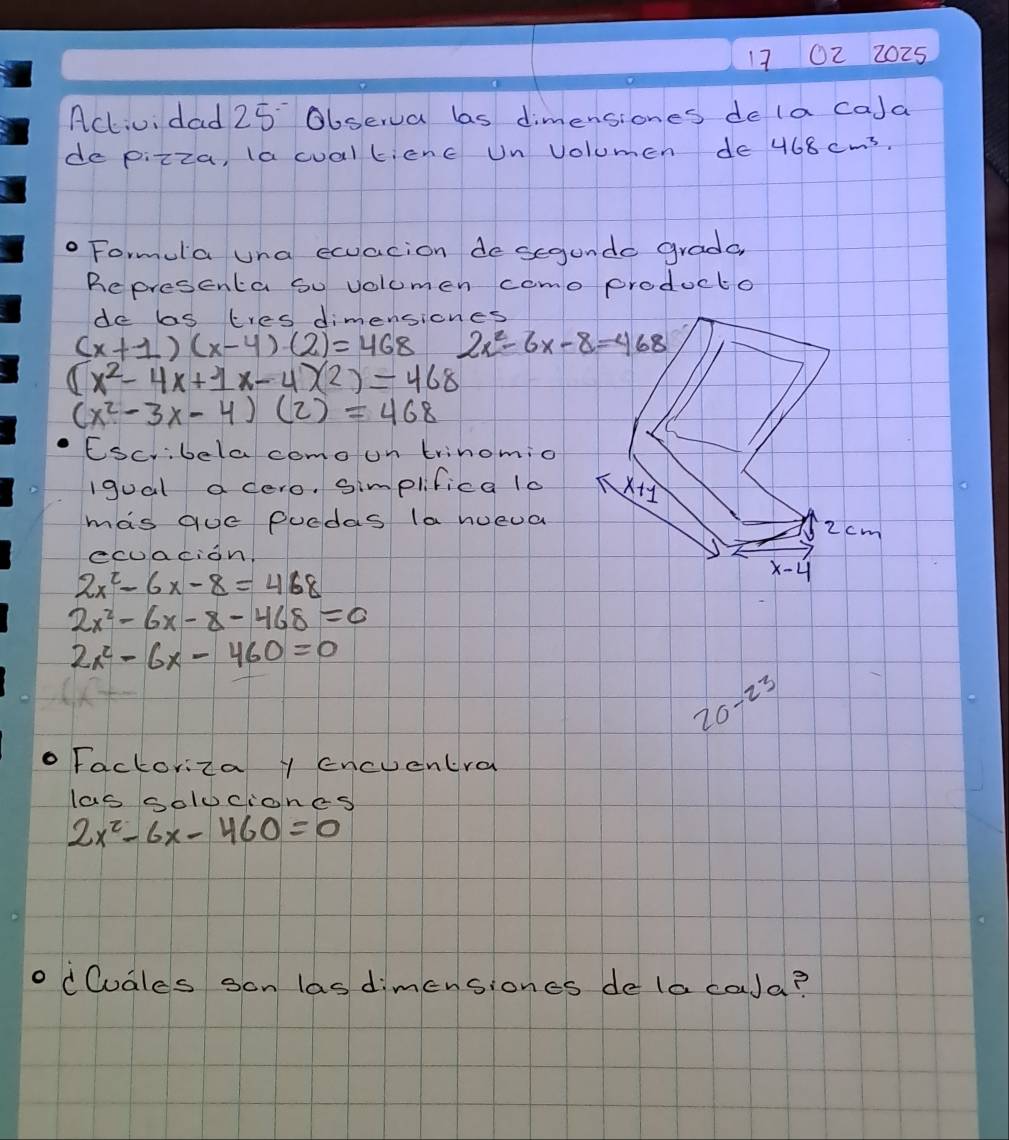 17 02 2025
Actividad 25- Observa las dimensiones de la caja
de pizza, la cual tiene un volumen de 468 cm³.
• Formula una ecuacion de segundo grado,
Representa su volumen como producto
de las tres dimensiones
(x+1)(x-4)(2)=468 2x²-6x-8=468
(x²-4x+1x-4)(2)=468
(x²-3x-4)(2)=468
• Escribela como un trinomio
igual a cero. Simplifica lo
más que puedas la nueva
ecuación.
2x²-6x-8=468
2x²-6x-8-468=0
2x²-6x-460=0
x+1
2cm
x-4
20-23
• Factoriza y encuentra
las soluciones
2x²-6x-460=0
• ¿Cuáles son las dimensiones de la caja?